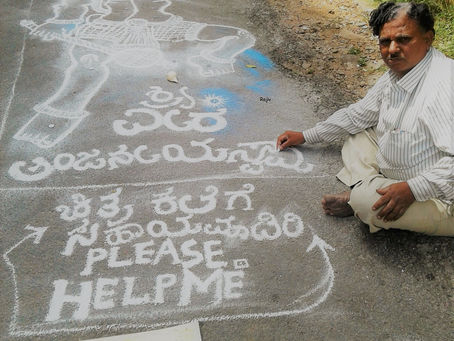 ಶ್ರೀ
ವೀರ
ಆಂಜನೇಯಸ್ವಾಮಿ
ಚಿತ್ರ ಕಲೆಗೆ
ಸಹಾಯಮಾಡಿರಿ
PLEASE.
HELP ME